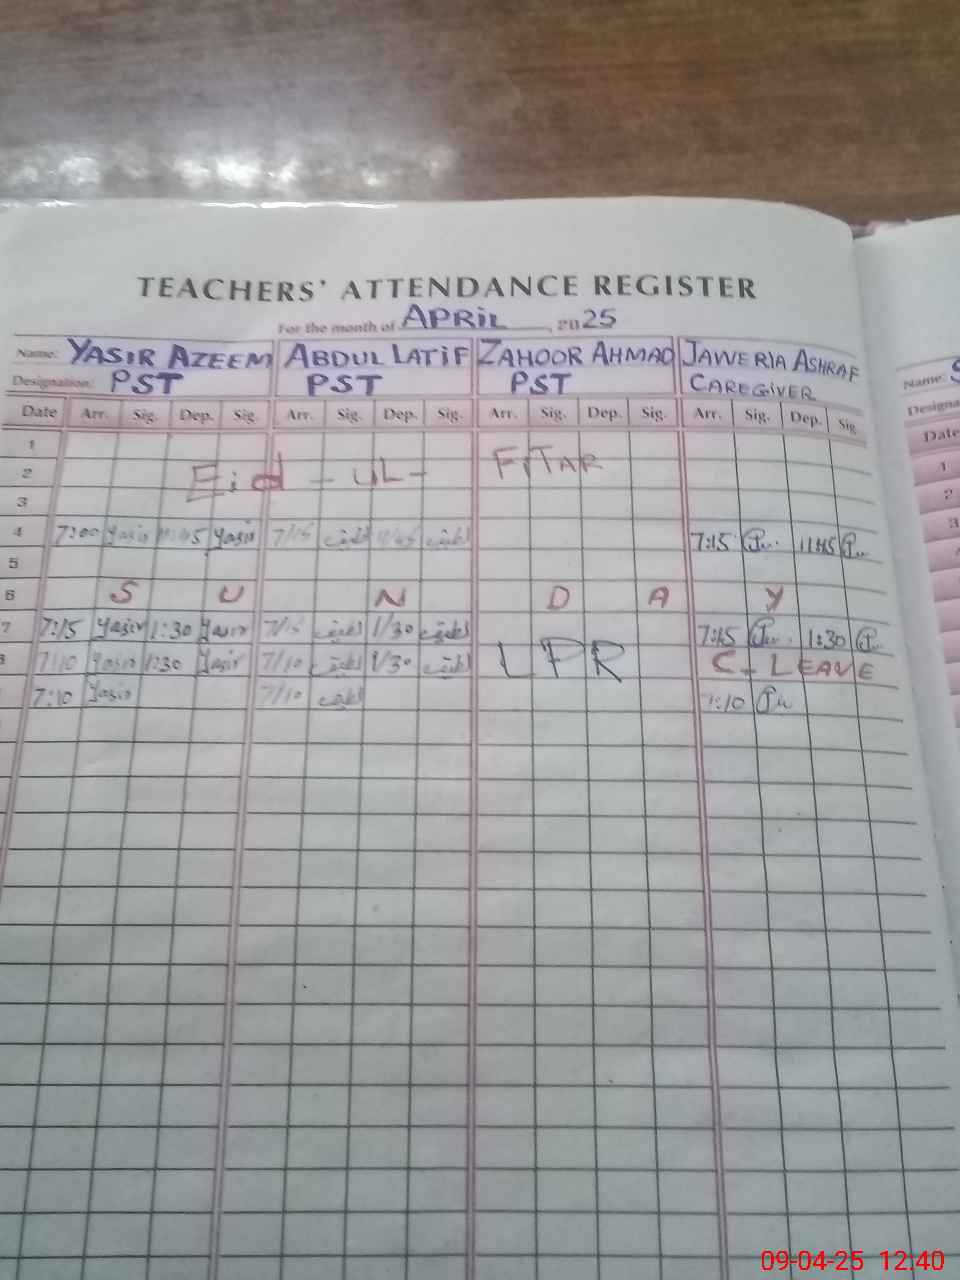 TEACHERS' ATTENDANCE REGISTER
For the month of APRIL, 2025
Name: YASIR AZEEM ABDUL LATIF ZAHOOR AHMAD JAWERIA ASHRAF Name: S
Designation: PST PST PST CAREGIVER Designa
Date Arr. Sig. Dep. Sig. Arr. Sig. Dep. Sig. Arr. Sig. Dep. Sig. Arr. Sig. Dep. Sig. Date
1 1
2 Eid - UL - FITAR 2
3 3
4 7:00 Yasir 11:45 Yasir 7/15 لطیف 11/45 لطیف 7:15 11:45
5
6 S U N D A Y
7 7:15 Yasir 1:30 Yasir 7/15 لطیف 1/30 لطیف 7:15 1:30
8 7:10 Yasir 1:30 Yasir 7/10 لطیف 1/30 لطیف LPR C-LEAVE
7:10 Yasir 7/10 لطیف 7:10
09-04-25 12:40